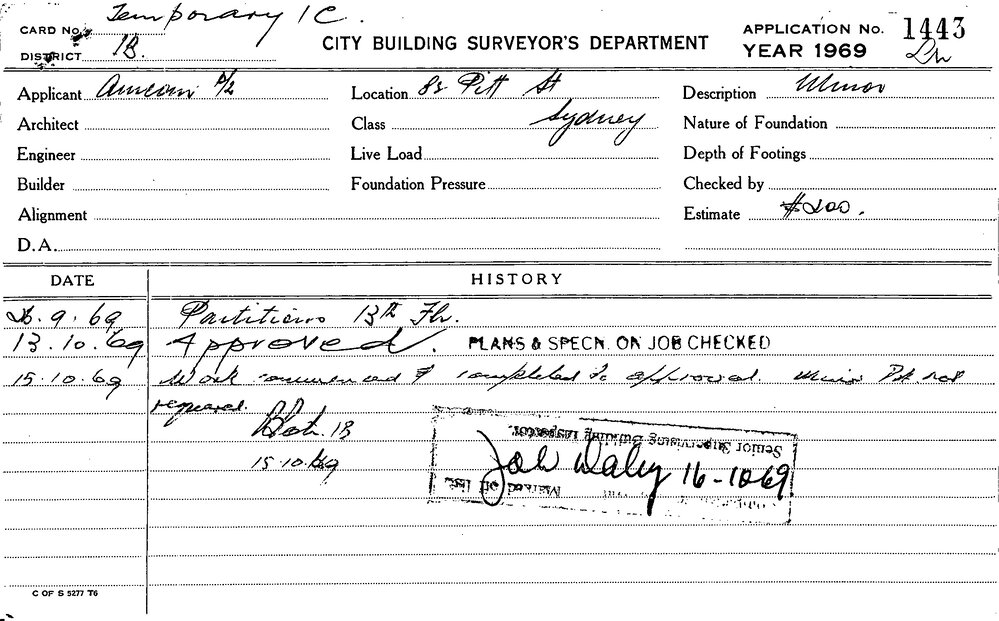 Temporary 1C.
CARD No.
DISTRICT 1B.
CITY BUILDING SURVEYOR'S DEPARTMENT
APPLICATION No. 1443
YEAR 1969
Applicant P/L
Location 82 Pitt St
Sydney
Description Minor
Architect
Class
Nature of Foundation
Engineer
Live Load
Depth of Footings
Builder
Foundation Pressure
Checked by
Alignment
Estimate $200.
D.A.
DATE HISTORY
26.9.69 Partitions 13th Flr.
13.10.69 Approved. PLANS & SPECN. ON JOB CHECKED
15.10.69 Work commenced & completed to approval. Minor not
required.
1B
15.10.69
Senior Supervising Building Inspector.
Daley 16-10-69
Marked off list.
C OF S 5277 T6